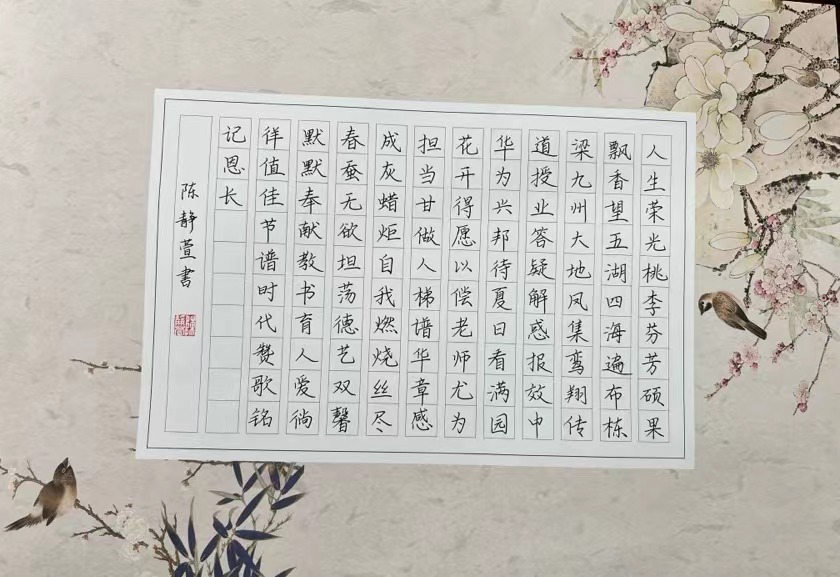 人生荣光桃李芬芳硕果
飘香望五湖四海遍布栋
梁九州大地凤集鸾翔传
道授业答疑解惑报效中
华为兴邦待夏日看满园
花开得愿以偿老师尤为
担当甘做人梯谱华章感
成灰蜡炬自我燃烧丝尽
春蚕无欲坦荡德艺双馨
默默奉献教书育人爱徜
徉值佳节谱时代赞歌铭
记恩长
陈静萱書